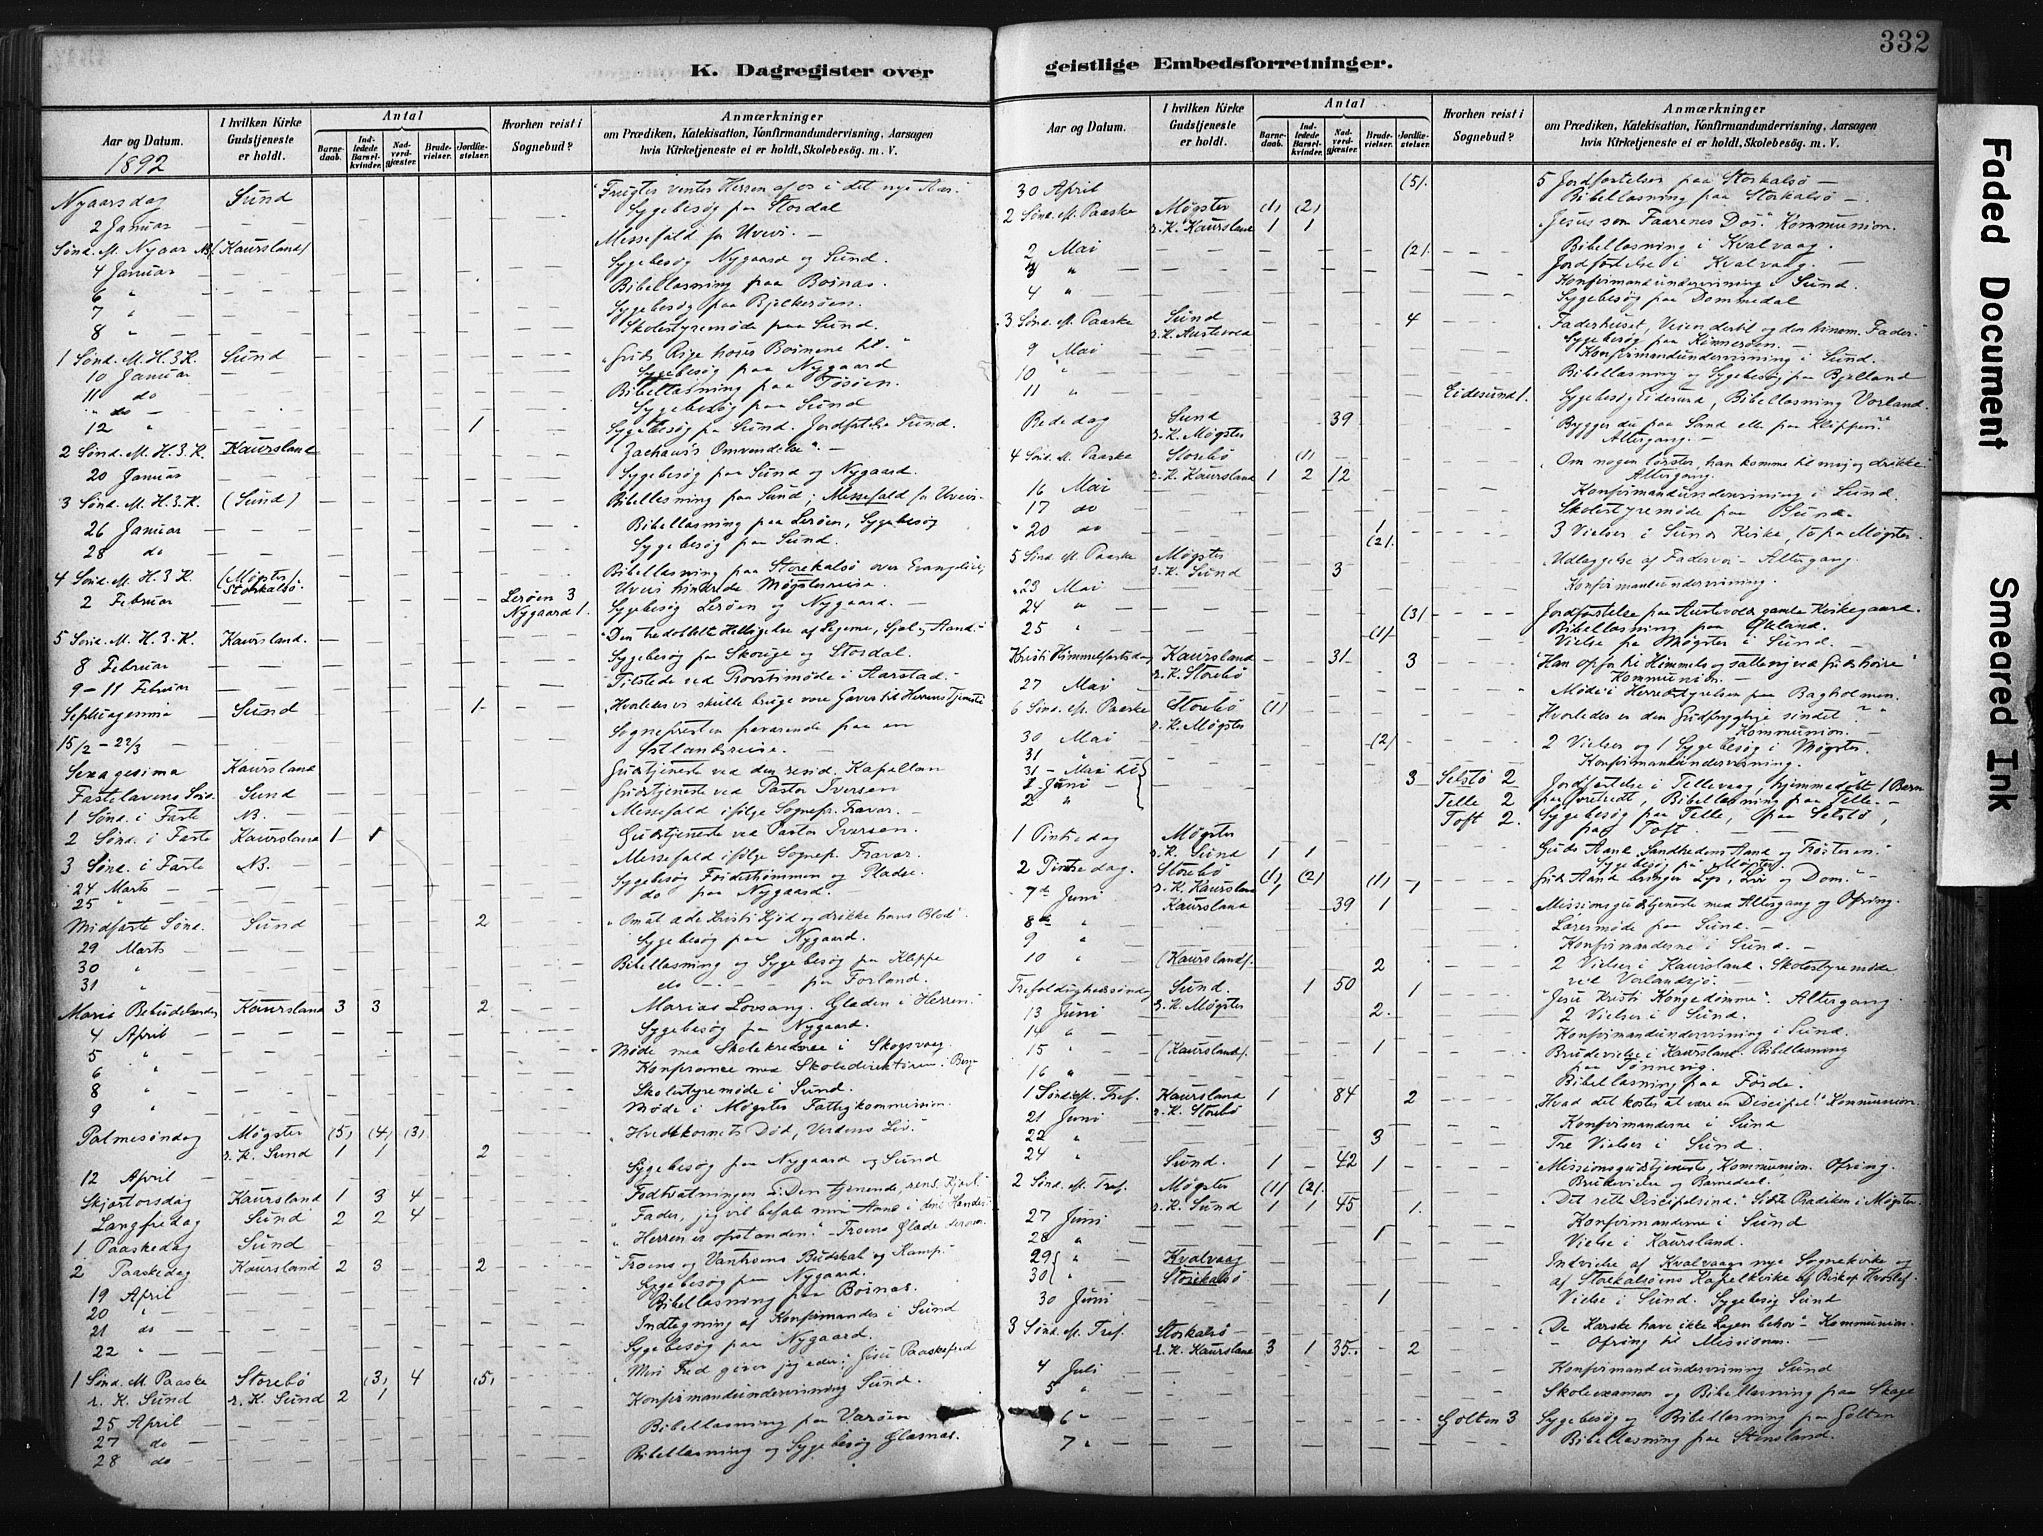 332
K. Dagregister over
geistlige Embedsforretninger.
Aar og Datum.
1892
I hvilken Kirke Gudstjeneste er holdt.
Antal
Barnedaab.
Indledede Barselkvinder.
Nadverdgjæster.
Brudevielser.
Jordfæstelser.
Hvorhen reist i Sognebud?
Anmærkninger
om Prædiken, Katekisation, Konfirmandundervisning, Aarsagen
hvis Kirketjeneste ei er holdt, Skolebesøg. m. V.
Nyaarsdag Sund "Frugter venter Herren af os i det nye Aar."
2 Januar Sygebesøg paa Stordal
Sønd. M. Nyaar (Kaursland) Messefald for Uveir.
4 Januar Sygebesøg Nygaard og Sund.
6 " Bibellæsning paa Boinæs.
7 " Sygebesøg paa Bjelkerøen.
8 " Skolestyremøde paa Sund.
1 Sønd. M. H. 3 K. Sund
10 Januar Sygebesøg paa Nygaard
11 do Bibellæsning paa
" do Sygebesøg paa Sund
12 " 1 Sygebesøg paa Sund. Jordfæstelse Sund.
2 Sønd. M. H. 3. K. Kaursland "Zachæus's Omvendelse".
20 Januar Sygebesøg paa Sund og Nygaard.
3 Sønd. M. H. 3. K. (Sund) Bibellæsning paa Sund; Messefald for Uveir.
26 Januar Bibellæsning paa Lerøen, Sygebesøg
28 do Sygebesøg paa Sund.
4 Sønd. M. H. 3 K. (Møgster) Storekalsø. Bibellæsning paa Storekalsø over Evangeliet; Uveir hindrede Møgsterreise.
2 Februar Lerøen 3 Nygaard 1. Sygebesøg Lerøen og Nygaard.
5 Sønd. M. H. 3. K. Kaursland. "Den tredobbelt Helligelse af Legeme, Sjæl og Aand."
8 Februar Sygebesøg paa Skorge og Stordal.
9 - 11 Februar Tilstede ved Provstimøde i Aarstad.
Septuagesima Sund 1 "Hvorledes vi skulle bruge vore Gaver til Herrens Tjeneste
15/2 - 22/3 Sognepresten fraværende paa en Østlandsreise.
Sexagesima Kaursland Gudstjeneste ved den resid. Kapellan
Fastelavens Sønd. Sund Gudstjeneste ved Pastor Iversen
1 Sønd. i Faste N. Messefald ifølge Sognepr. Fravær.
2 Sønd. i Faste Kaursland 1 1 Gudstjeneste ved Pastor Iversen.
3 Sønd. i Faste N. Messefald ifølge Sognepr. Fravær.
24 Marts Sygebesøg
25 " do paa Nygaard.
Midfaste Sønd. Sund 2 "Om at æde Kristi Kjød og drikke hans Blod."
29 Marts Sygebesøg paa Nygaard.
30 " Bibellæsning og Sygebesøg paa Klippe
31 " do paa Forland.
Mariæ Bebudelsesdag Kaursland 3 3 2 Marias Lovsang. Glæden i Herren."
4 April Sygebesøg paa Nygaard.
5 " Møde med Skolekredsene i Skogsvaag
6 " Konferance med Skoledirektøren i Bergen
8 " Skolestyremøde i Sund.
9 " Møde i Møgster Fattigkommission.
Palmesøndag Møgster (5) (4) (3) "Hvedekornets Død, Verdens Liv."
r. K. Sund 1 1 2
12 April Sygebesøg paa Nygaard og Sund
Skjærtorsdag Kaursland 1 3 4 Fodtvætningen: Den tjenende, rens. Kjærl.
Langfredag Sund 2 2 4 "Fader, jeg vil befale min Aand i dine Hænder."
1 Paaskedag Sund "Herren er opstanden." Troens Glæde derover.
2 Paaskedag Kaursland 2 3 2 Troens og Vantroens Budskab og Kamp."
19 April Sygebesøg paa Nygaard.
20 " Bibellæsning paa Boinæs.
21 do Indtegning af Konfirmander i Sund
22 " Sygebesøg paa Nygaard.
1 Sønd. M Paaske Storebø (3) 4 (5) "Min Fred giver jeg eder"; Jesu Paaskefred
r. K. Sund r. K. Sund 2 1
25 April Konfirmandundervisning Sund.
27 do Bibellæsning paa Varøen
28 do Bibellæsning og Sygebesøg Glæsnæs.
Aar og Datum.
I hvilken Kirke Gudstjeneste er holdt.
Antal
Barnedaab.
Indledede Barselkvinder.
Nadverdgjæster.
Brudevielser.
Jordfæstelser.
Hvorhen reist i Sognebud?
Anmærkninger
om Prædiken, Katekisation, Konfirmandundervisning, Aarsagen
hvis Kirketjeneste ei er holdt, Skolebesøg. m. V.
30 April (5). 5 Jordfæstelser paa Storkalsø
Bibellæsning paa Storkalsø
2 Sønd. M. Paaske Møgster (1) (2) Jesus som Faarenes Dør." Kommunion.
r. K. Kaursland 1 1
2 Mai (2). Bibellæsning i Kvalvaag.
3 " Jordfæstelse i Kvalvaag.
4 " Konfirmandundervisning i Sund.
Sygebesøg paa Dommedal
3 Sønd. M. Paaske Sund 4 "Faderhuset, Veien dertil og den himm. Fader."
r. K. Austevold
9 Mai Sygebesøg paa
10 " Konfirmandundervisning i Sund.
11 " Eidesund 1. Bibellæsning og Sygebesøg paa Bjelland
Sygebesøg Eidesund, Bibellæsning Vorland.
Bededag Sund 39 "Bygger du paa Sand eller paa Klippen?"
r. K. Møgster Altergang.
4 Sønd. M. Paaske Storebø (1) "Om nogen tørster, han komme til mig og drikke."
r. K. Kaursland 1 2 12 Altergang.
16 Mai Konfirmandundervisning i Sund.
17 do Skolestyremøde paa Sund.
20 do 1 (2). 3 Vielser i Sunds Kirke, to fra Møgster.
5 Sønd. M. Paaske Møgster Udlæggelse af Fadervor. Altergang.
r. K. Sund 3
23 Mai Konfirmandundervisning.
24 " (3) Jordfæstelse paa Austevolds gamle Kirkegaard.
25 " (1) Bibellæsning paa Økland.
Vielse fra Møgster i Sund.
Kristi Himmelfartsdag Kaursland 31 3 "Han opfor til Himmels og sattes ved Guds høire"
r. K. Storebø Kommunion.
27 Mai Møde i Herredstyrelsen paa Bagholmen.
6 Sønd. M. Paaske Storebø (1) Hvorledes er den Gudfrygtige sindet?"
r. K. Møgster Kommunion.
30 Mai (2) 2 Vielser og 1 Sygebesøg i Møgster.
31 " Konfirmandundervisning.
31 - Mai til 3 Selstø 2 Jordfæstelse i Tellevaag, hjemmedøbt 1 Barn
1 Juni Telle 2 Bibellæsning paa Telle.
2 " Toft 2. Sygebesøg paa Telle, paa Selstø, paa Toft.
1 Pintsedag Møgster Guds Aand Sandhedens Aand og Trøsteren."
r. K. Sund 1 1 Sygebesøg paa Møgster.
2 Pintsedag. Storebø (1) (2) (1) Guds Aand bringer Lys, Liv og Dom."
r. K. Kaursland 1 1
7de Juni Kaursland 39 1 Missionsgudstjeneste med Altergang og Ofring.
8de " Lærermøde paa Sund.
9 " Konfirmanderne i Sund.
10 " (Kaursland). 2 2 Vielser i Kaursland. Skolestyremøde
ved Vorlandsjø.
Trefoldighedssøndag Sund. 1 50 1 "Jesu Kristi Kongedømme". Altergang
13 Juni r. K. Møgster 2. 2 Vielser i Sund.
14 " Konfirmandundervisning i Sund.
15 " (Kaursland). 1 Brudevielse i Kaursland. Bibellæsning
paa Tønnevig.
16 " Bibellæsning paa Førde.
1 Sønd. M. Tref. Kaursland 1 84 2 "Hvad det koster at være en Discipel!" Kommunion.
21 Juni r. K. Storebø Konfirmanderne i Sund
22 " 3 Tre Vielser i Sund.
24 " Sund. 1 42 1 Missionsgudstjeneste, Kommunion. Ofring.
Brudevielse og Barnedaab.
2 Sønd. M. Tref. Møgster (1) (2). "Det rette Discipelsind." Sidste Prædiken i Møgster.
27 Juni r. K. Sund 1 1 45 1. Konfirmanderne i Sund
28 " 1 Vielse i Kaursland.
29 " Kvalvaag Indvielse af Kvalvaags nye Sognekirke og
30 " Storekalsø af Storekalsøens Kapelkirke af Biskop Hvoslef.
30 Juni 1 Vielse i Sund. Sygebesøg Sund
3 Sønd. M. Tref. Storkalsø "De Karske have ikke Lægen behov" Kommunion.
r. K. Kaursland 3 1 35 2 Ofring til Missionen.
4 Juli Konfirmandundervisning Sund
5 " Skoleexamen og Bibellæsning paa Skage
6 " Golten 3 Sygebesøg og Bibellæsning paa Golten
7 " Bibellæsning paa Stensland.
Faded Document
Smeared Ink